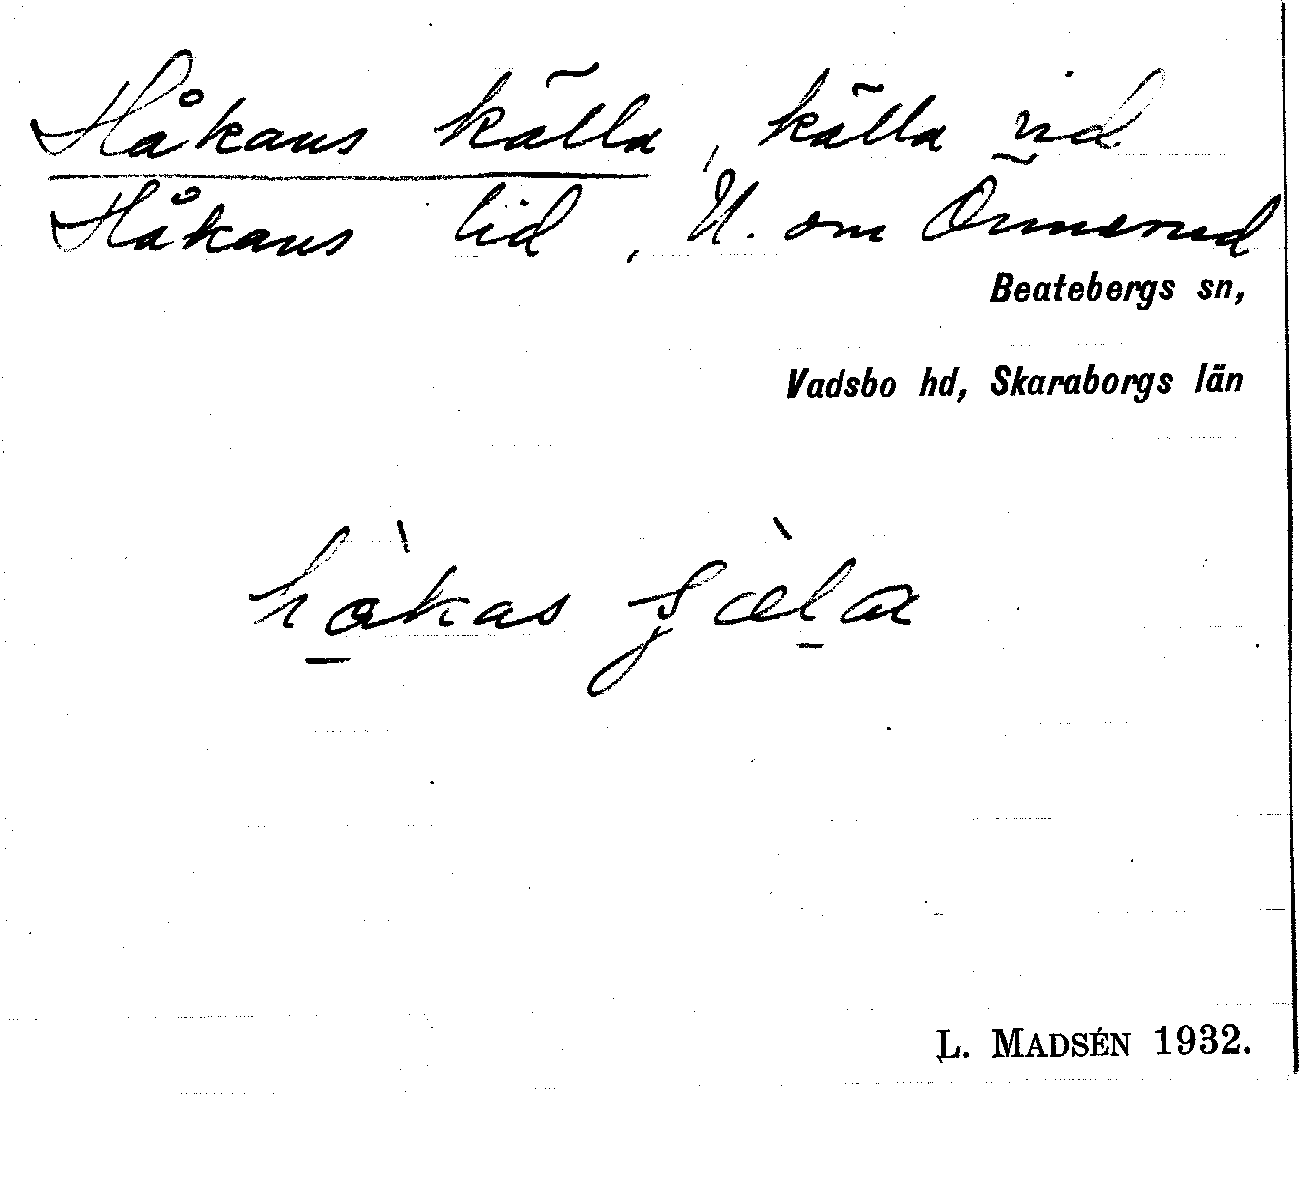 Håkans källa, källa vid
Håkans lid, N. om Örmerud
Beatebergs sn,
Vadsbo hd, Skaraborgs län
hàkas
L. MADSÉN 1932.